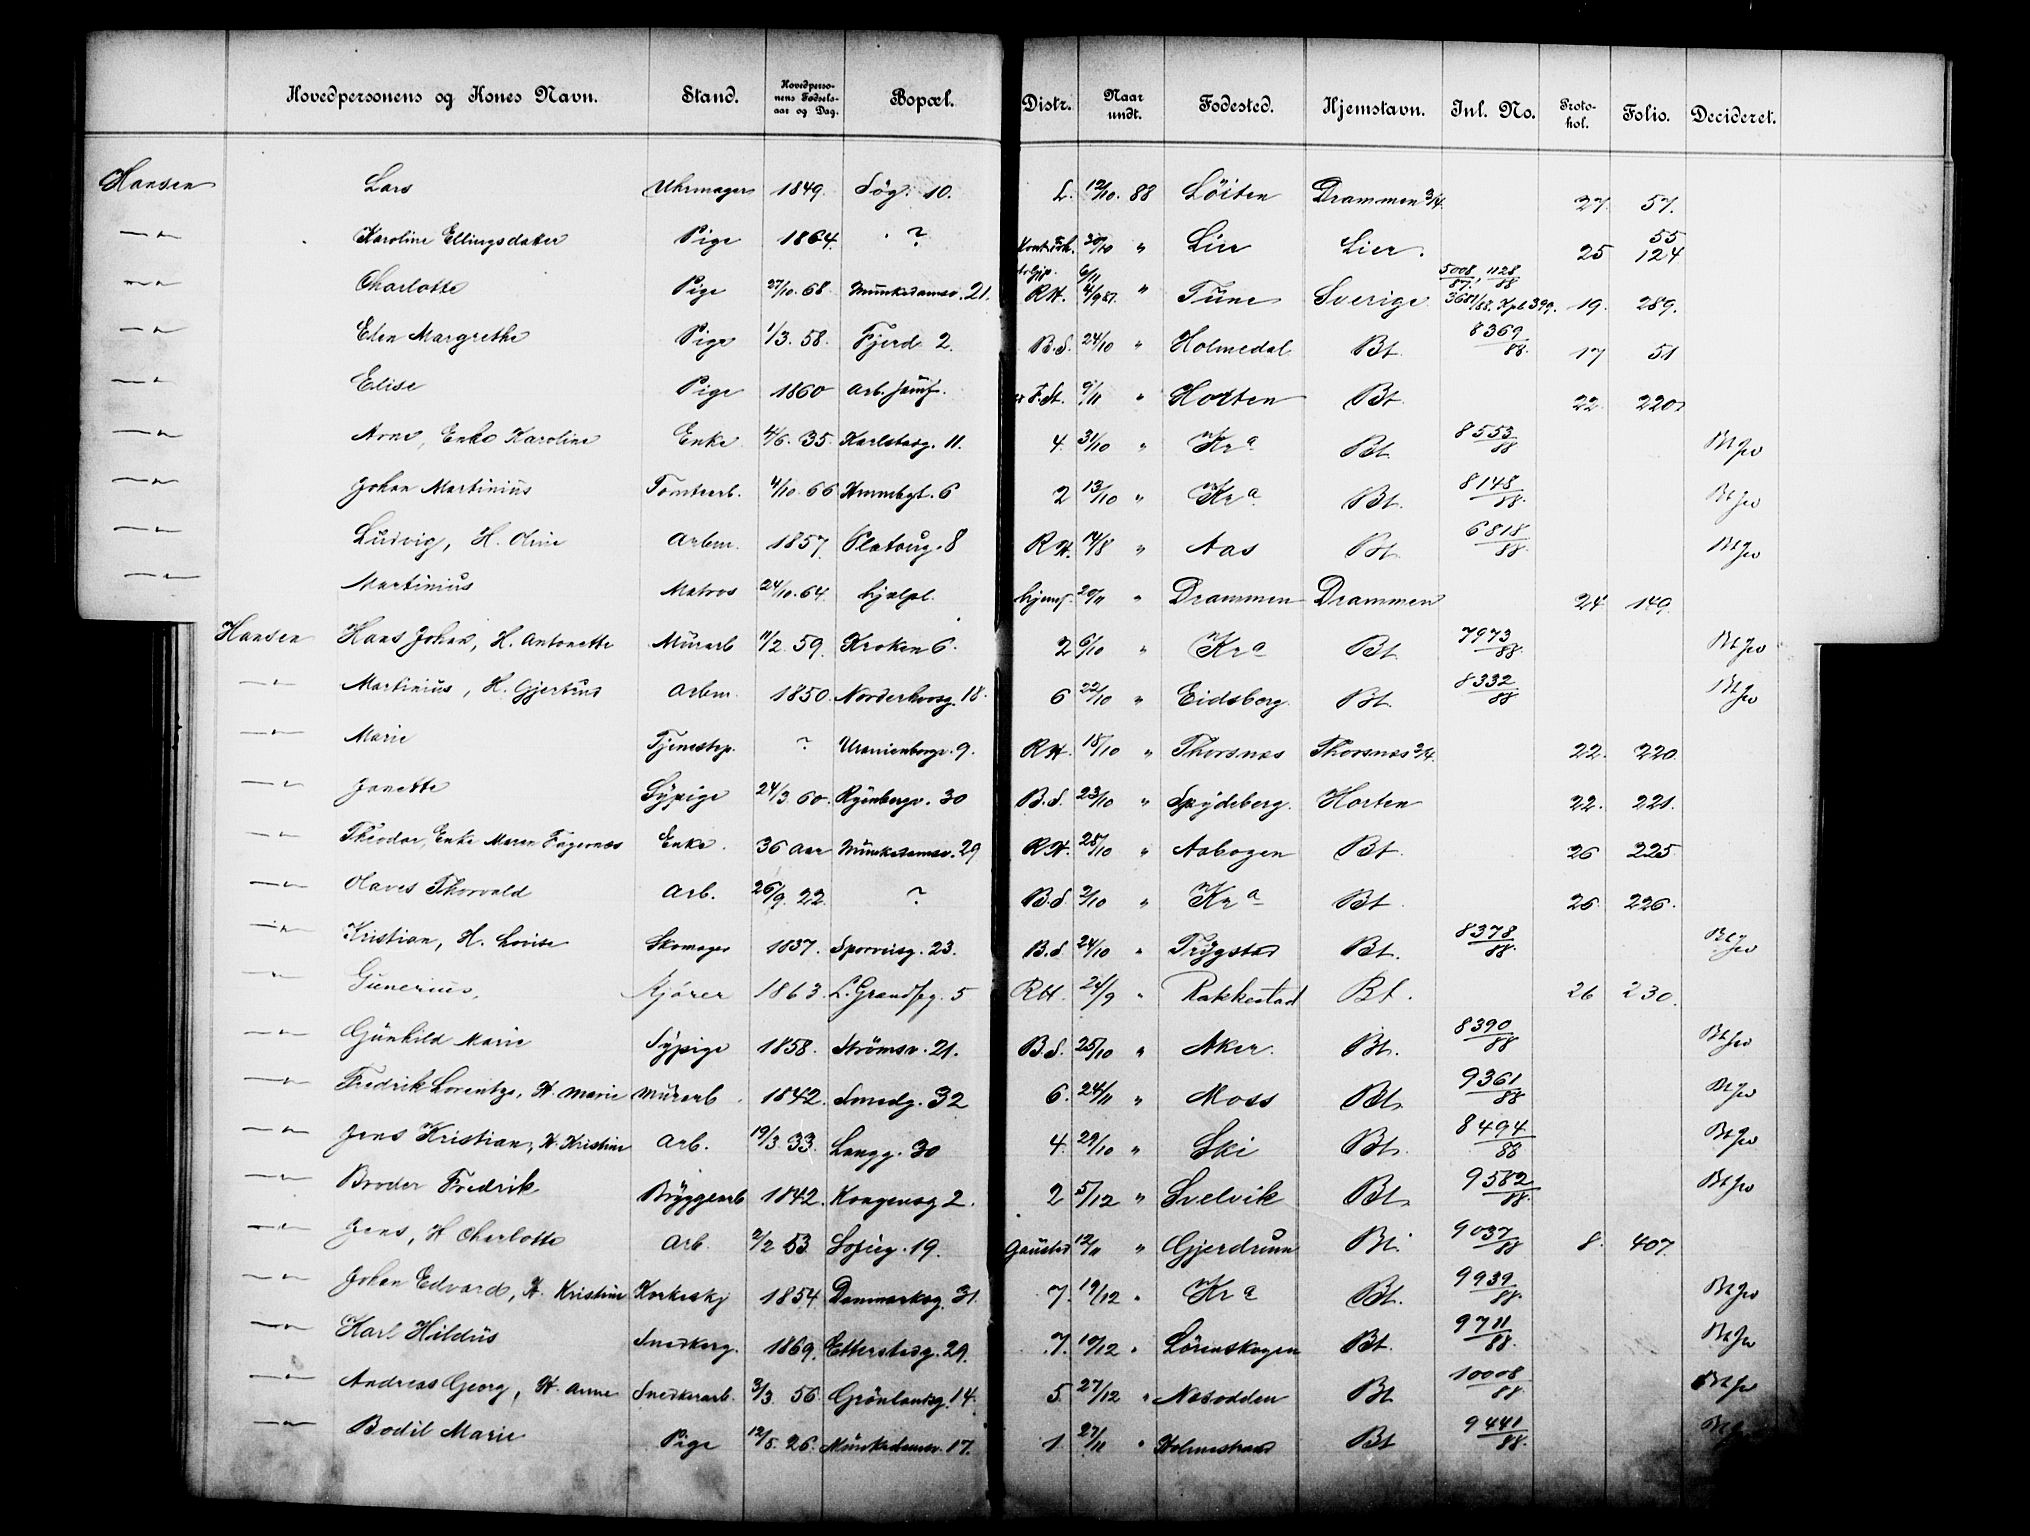 Hovedpersonens og Kones Navn. Stand. Hovedperso-nens Fødsels-aar og Dag. Bopæl. Distr. Naar undt. Fødested. Hjemstavn. Inl. No. Proto-kol. Folio. Decideret.
Hansen Lars Uhrmager 1849. Søg. 10. L. 12/10. 88 Löiten Drammen 3/4. 27. 57.
—"— Karoline Ellingsdatter Pige 1864. ? 30/10 " Lier Lier. 25 55 124
—"— Charlotte Pige 27/10. 68. Munkedamsv. 21. RH. 6/11 4/9 87. " Tune Sverige 5008/87, 1128/88 3681/88. Kpl 399. 19. 289.
—"— Elen Margrethe Pige 1/3. 58. Fjerd. 2. B.S. 24/10 " Holmedal Bt. 8369/88 17 51
—"— Elise Pige 1860 Arb. 9/11 " Horten Bt. 22. 220
—"— Arne, Enke Karoline Enke 4/6. 35. Karlsborg. 11. 4. 31/10 " Kra Bt. 8553/88 Bt Jw
—"— Johan Martinius Tomtearb. 4/10. 66 6 2 13/10 " Kra. Bt. 8148/88. Bt Jw
—"— Ludvig, H. Oline Arbm. 1857. Platoug. 8 RH. 14/8 " Aas Bt. 6818/88. Bt Jw
—"— Martinius Matros 24/10. 64. hjælpl. 20/11 " Drammen Drammen 24 149.
Hansen Hans Johan, H. Antonette Murarb 11/2. 59. Kroken 6. 2 6/10 " Kra Bt. 7973/88. Bt Jw
—"— Martinius, H. Gjertrud Arbm. 1850. Norderhovsg. 18. 6 22/10 " Eidsberg. Bt. 8332/88 Bt Jw
—"— Marie Tjenestep. ? Uranienborgv. 9. RH. 18/10 " Thorsnæs Thorsnæs 3/4. 22. 220.
—"— Janette Sypige 24/3. 60. Ryenbergv. 30 B.S. 23/10 " Spydeberg. Horten 22. 221.
—"— Theodor, Enke Maren Fagernæs Enke. 36 Aar Munkedamsv. 29 RH. 28/10 " Aabogen Bt. 26 225.
—"— Olaves Thorvald Arb. 26/9. 22. ? B.S. 2/10 " Kra Bt. 26. 226.
—"— Kristian, H. Lovise Skomager 1837. Sporveisg. 23. B.S. 24/10 " Trygstad Bt. 8378/88. Bt Jw
—"— Gunerius, Kjører 1863. L. Grændseg. 5 RH. 24/9 " Rakkestad Bt. 26 230.
—"— Gunhild Marie Sypige 1858. Strømsv. 21. B.S. 25/10 " Aker. Bt. 8390/88 Bt Jw
—"— Fredrik Lorentze, H. Marie Murarb. 1842. Smedg. 32 6. 24/11 " Moss Bt. 9361/88 Bt Jw
—"— Jens Kristian, H. Kristine Arb. 19/3. 33. Langg. 30 4. 29/10 " Ski Bt. 8494/88 Bt Jw
—"— Broder Fredrik Bryggearb 1842. Kongensg 2. 2 5/12 " Svelvik Bt. 9582/88. Bt Jw
—"— Jens, H Charlotte Arb. 2/2 53. Sofieg. 19. Gausted 12/11 " Gjerdrum Bt. 9037/88 8. 407.
—"— Johan Edvard, H. Kristine Korkeskj 1854. Danmarksg. 31. 7. 19/12 " Kra Bt. 9939/88. Bt Jw
—"— Karl Hildus Snedkerg. 1869. Etterstedg. 29. 7. 10/12 " Lörenskogen Bt. 9711/88. Bt Jw
—"— Andreas Georg, H. Anne Snedkerarb. 3/3. 56. Grönlandsg. 14. 5. 27/12 " Nesodden Bt. 10008/88 Bt Jw
—"— Bodil Marie Pige 12/5. 26. Munkedamsv. 17. 1. 27/11 " Holmestrand Bt 9441/88.